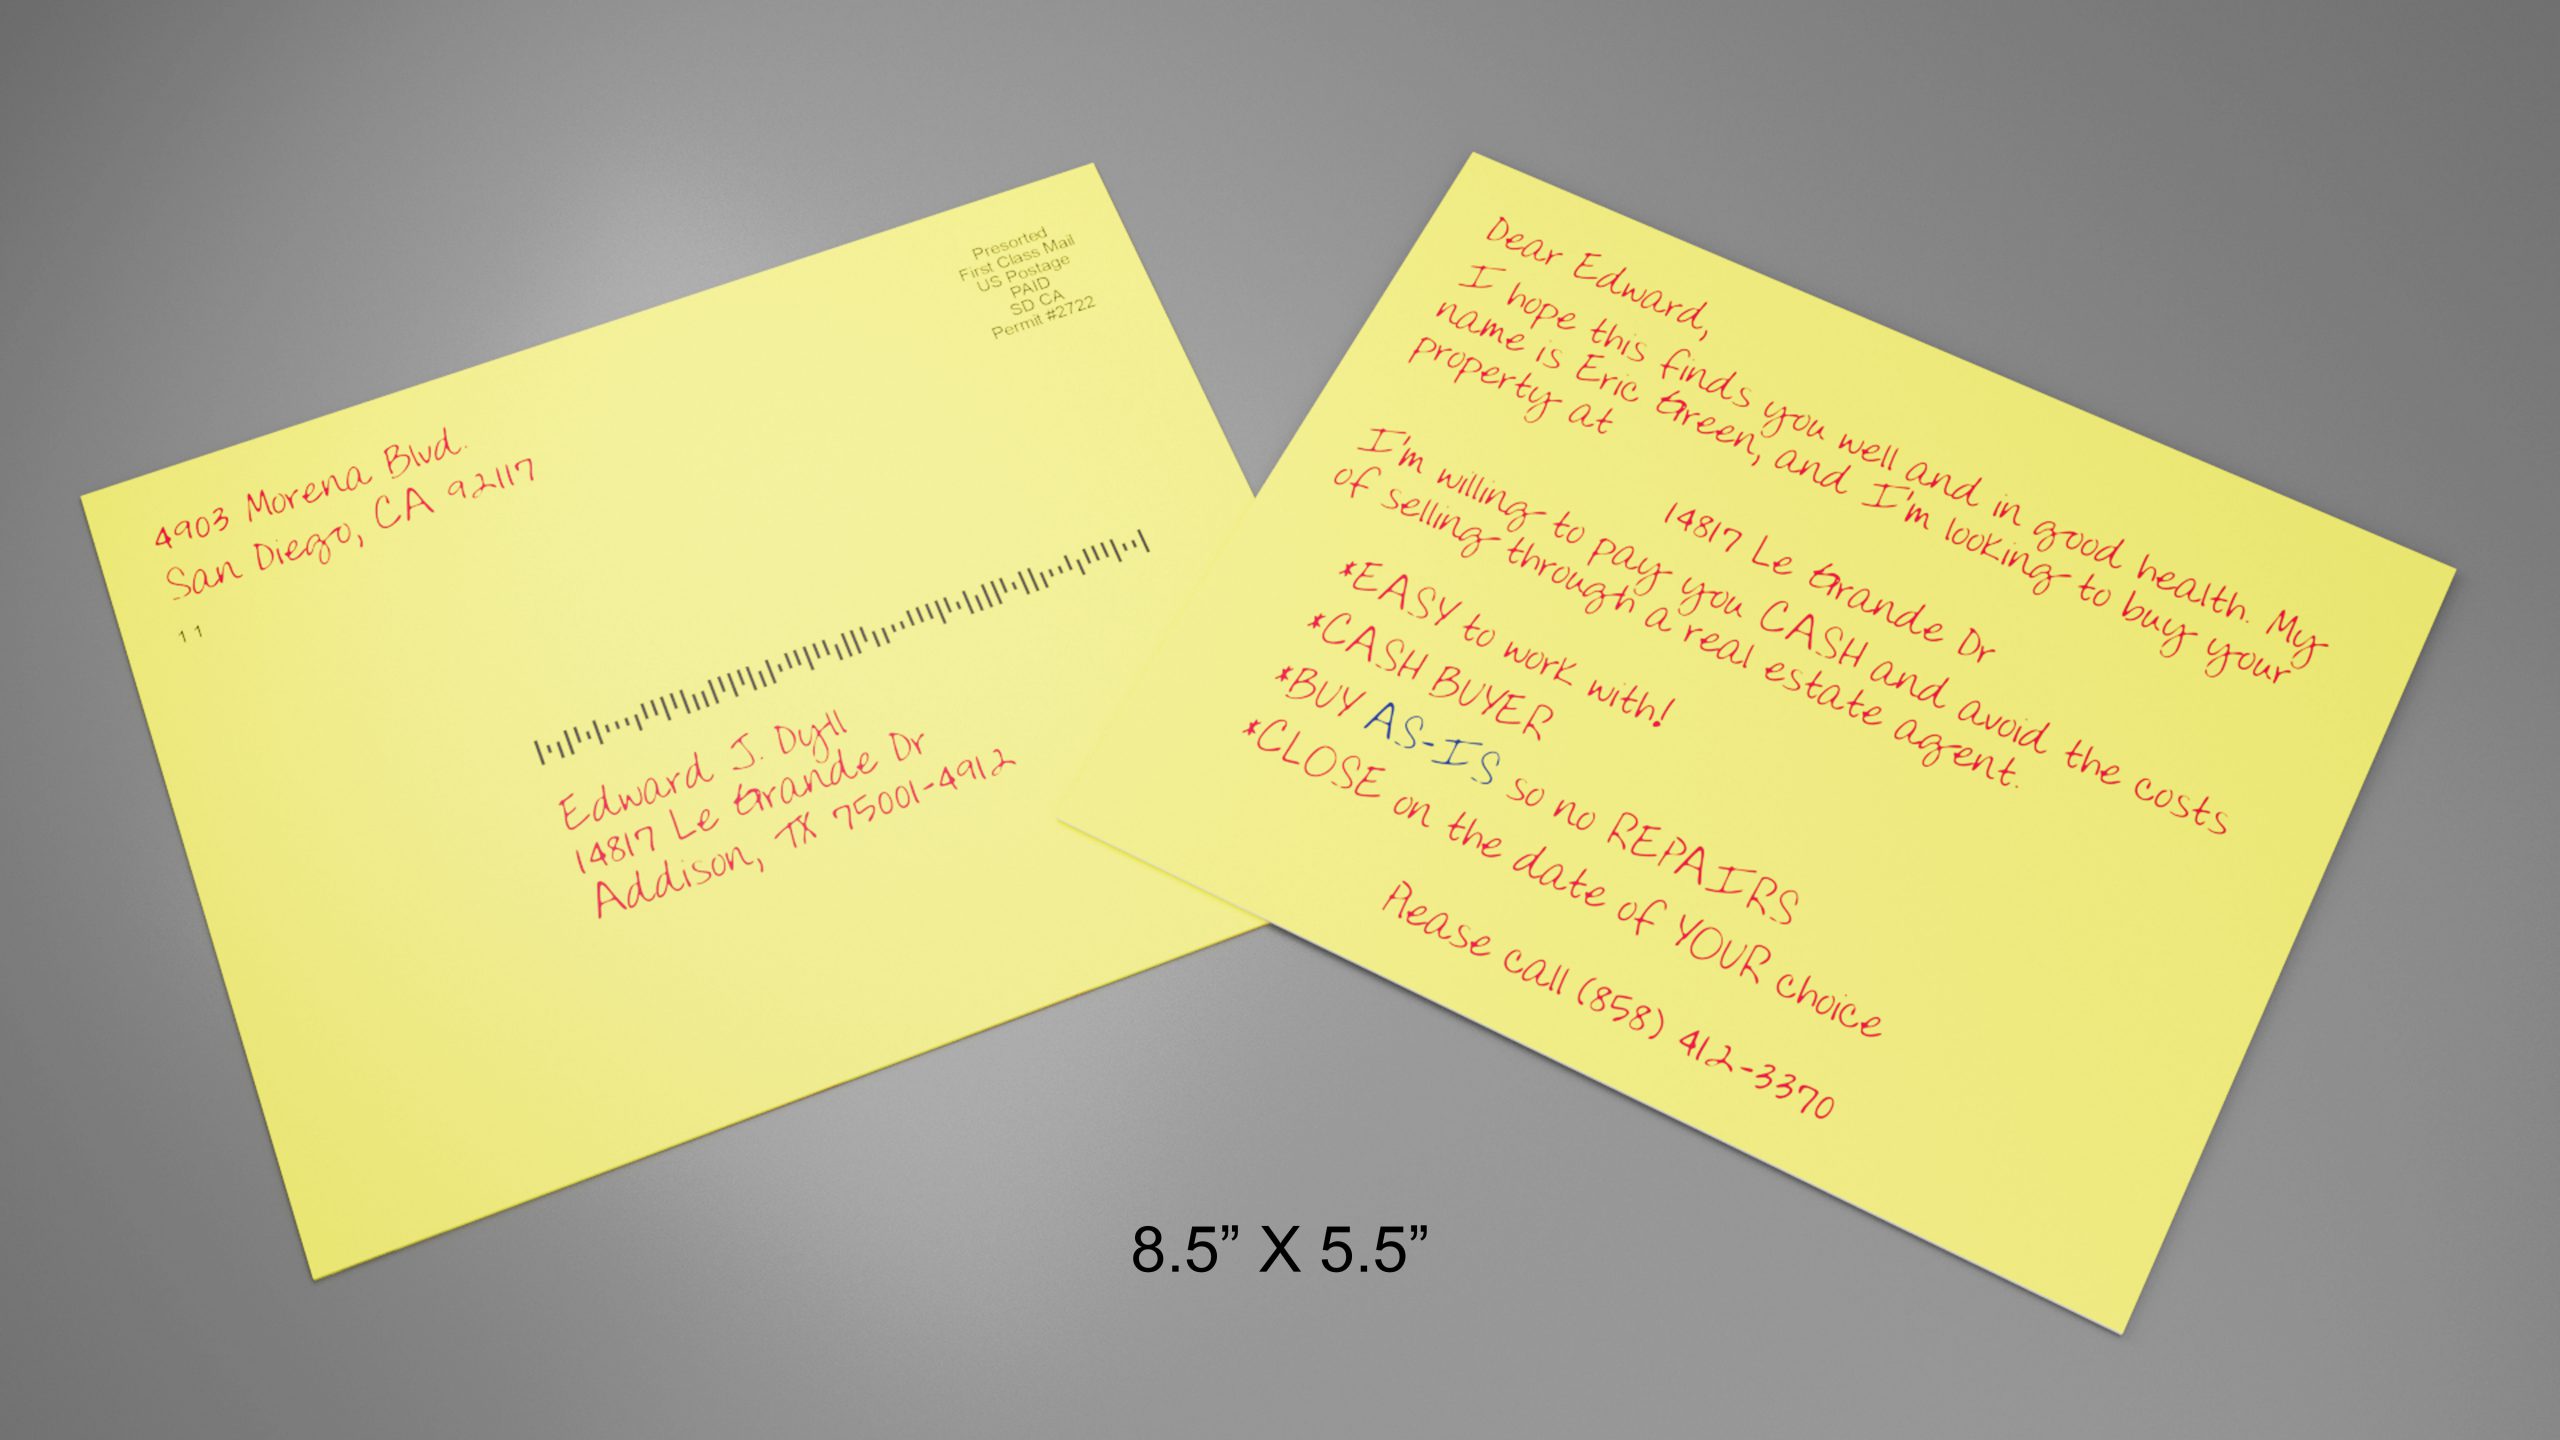 Presorted
First Class Mail
US Postage
PAID
SD CA
Permit #2722
4903 Morena Blvd.
San Diego, CA 92117
11
Edward J. Dyll
14817 Le Grande Dr
Addison, TX 75001-4912
Dear Edward,
I hope this finds you well and in good health. My
name is Eric Green, and I'm looking to buy your
property at
14817 Le Grande Dr
I'm willing to pay you CASH and avoid the costs
of selling through a real estate agent.
*EASY to work with!
*CASH BUYER
*BUY AS-IS so no REPAIRS
*CLOSE on the date of YOUR choice
Please call (858) 412-3370
8.5” X 5.5”